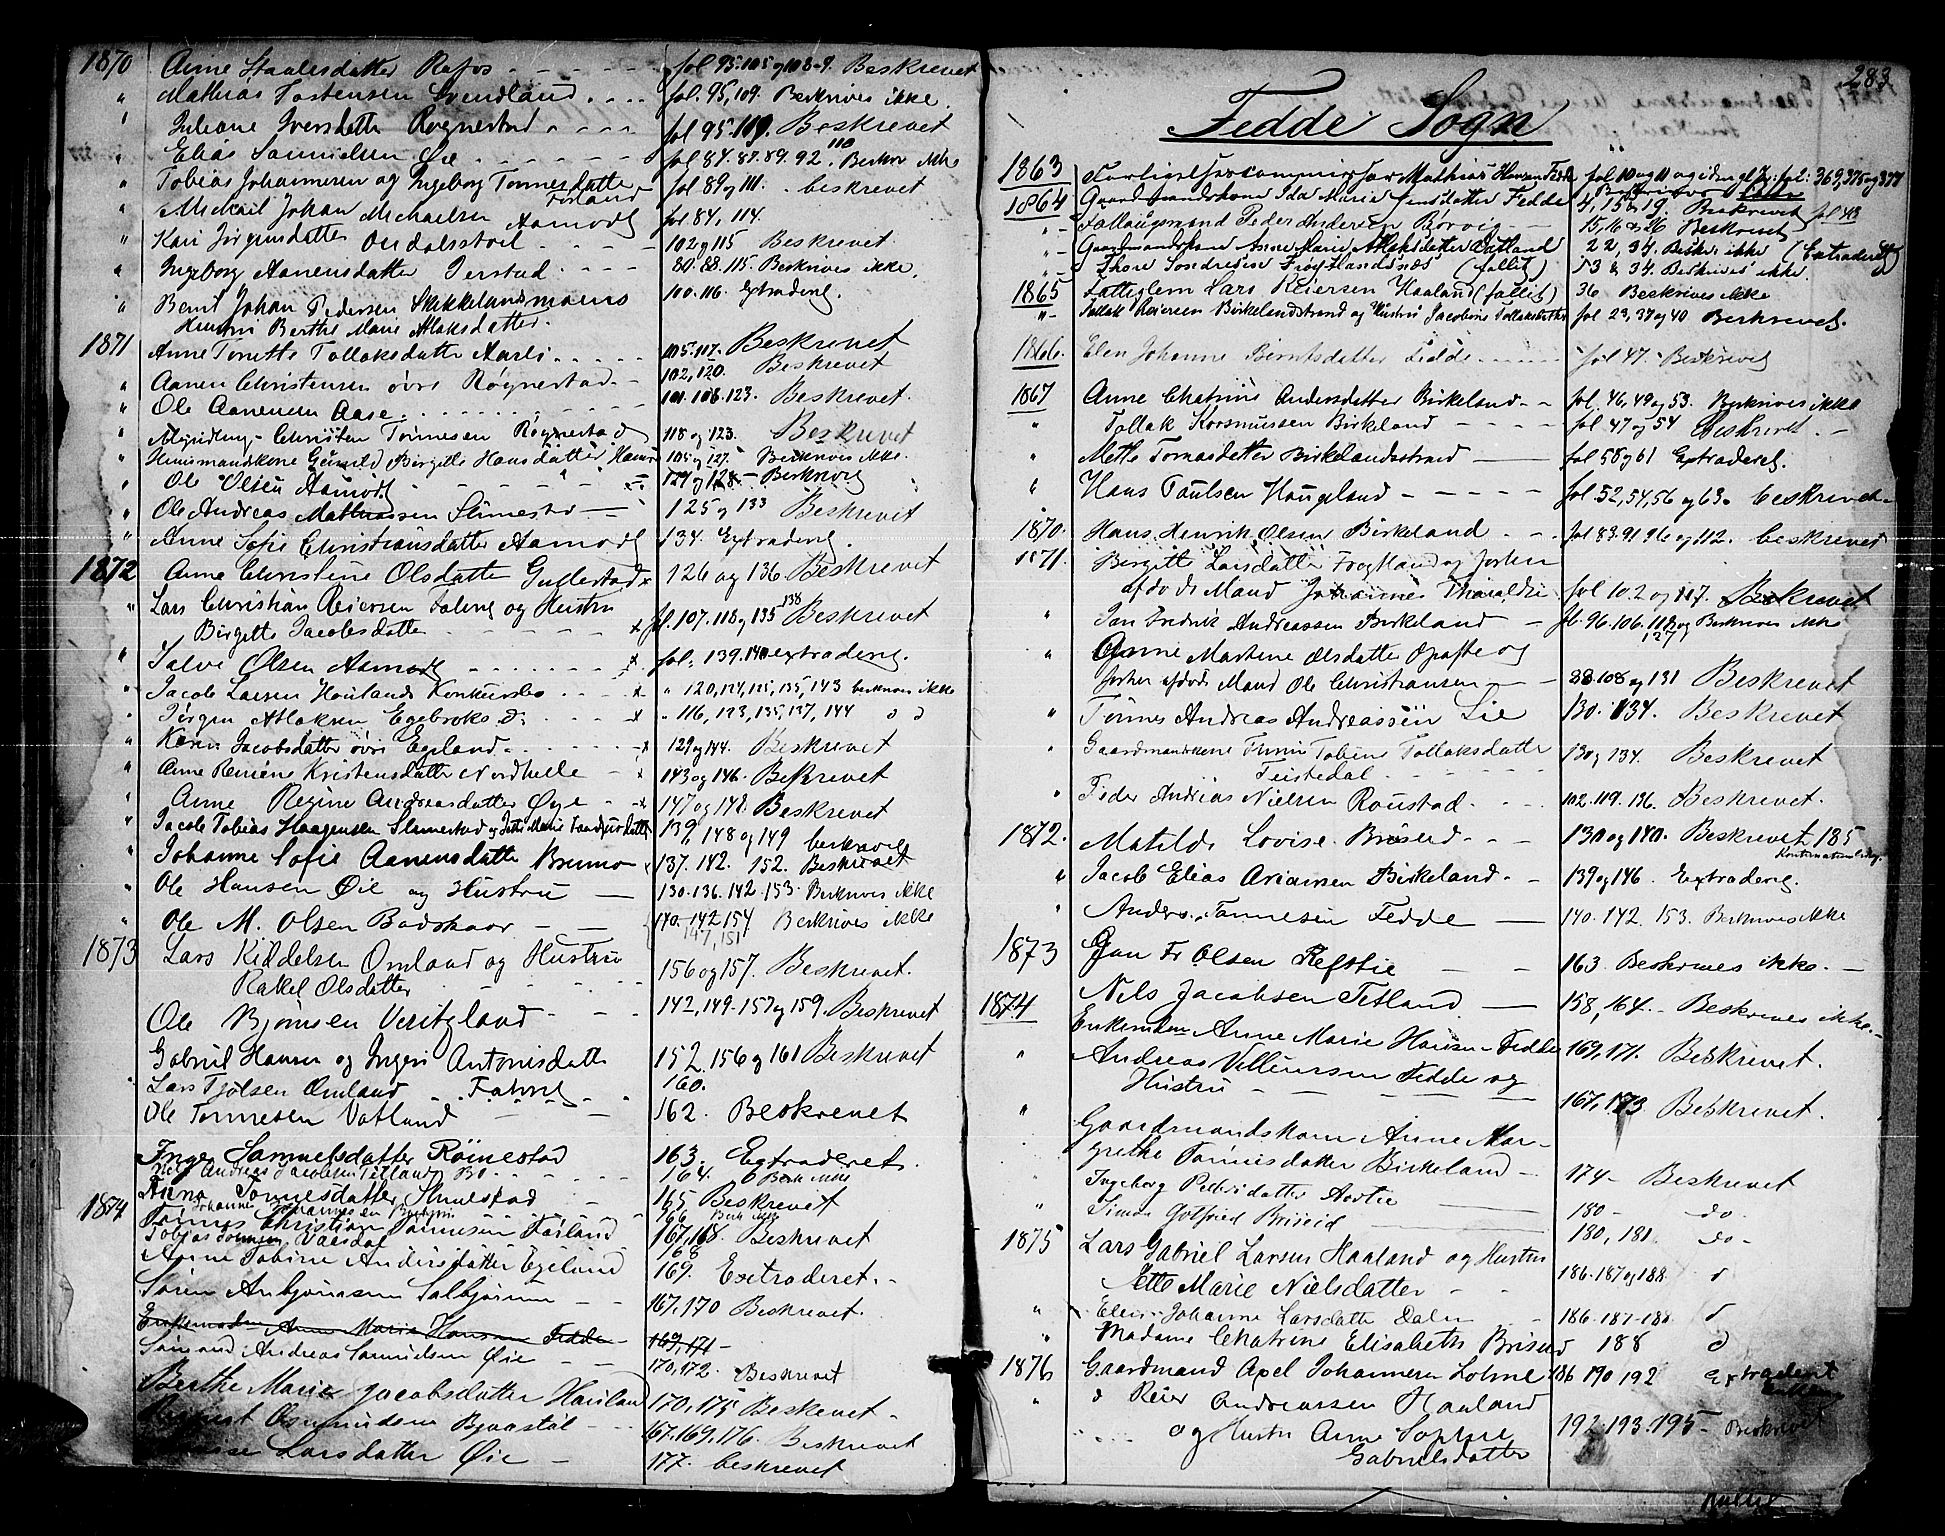 1870 Anne Staalesdatter Rafos fol 95. 105 og 108-9. Beskrevet
" Mathias Tostensen Svendland fol. 95, 109. Beskrives ikke.
" Juliane Iversdatter Røgnestad fol 95. 119. Beskrevet
" Elias Samuelsen Øie fol 84. 87. 89. 92. 113 Beskr ikke
" Tobias Johannesen og Ingeborg Tønnesdatter fol 89 og 111. beskrevet
" Michael Johan Michaelsen Aamodt fol. 84, 114.
" Kari Jørgensdatter 102 og 115 Beskrevet.
" Ingeborg Aanensdatter Jerstad 80. 88. 115. Beskrives ikke.
" Bernt Johan Pedersen 100. 116. Extraderet.
Hustru Berthe Marie Atlaksdatter.
1871 Anne Tonette Tollaksdatter Aarli 105. 117. Beskrevet
" Aanen Christensen øvre Røgnestad 102, 120. Beskrevet
" Ole Aanensen Aase 101. 106. 123. Beskrevet.
" Christen Tønnesen Røgnestad 118 og 123. Beskrevet
" Huusmandskone Gunild Birgitte Hansdatter 105 og 127. Beskrives ikke.
" Ole Olsen Aamodt 127 og 128 - Beskrevet
" Ole Andreas Mathiassen Slimestad 125 og 133 Beskrevet
" Anne Sofie Christiansdatter Aamodt 134. Extraderet.
1872 Anne Christine Olsdatter Gullestad 126 og 136. Beskrevet
" Lars Christian Reiersen og Hustru
Birgitte Jacobsdatter fol. 107. 118 og 135 138 Beskrevet
" Salve Olsen Aamodt fol. 139. 140 extraderet.
" Jacob Larsen Houlands Konkursbo " 120, 124, 125, 135, 143 beskrives ikke
" Jørgen Atlaksen Egebroks D: " 116, 123, 135, 137, 144 d d
" Karen Jacobsdatter øvre Egeland 129 og 144. Beskrevet
" Anne Reniene Kristensdatter Nordhelle 143 og 146. Beskrevet
" Anne Regine Andreasdatter Øye 147 og 148. Beskrevet
" Jacob Tobias Haagensen Slimestad og 139, 148 og 149 beskrevet
" Johanne Sofie Aanensdatter Brumo 137. 142. 152. Beskrevet
" Ole Hansen Øie og Hustru 130. 136. 142. 153. Beskrives ikke
" Ole M. Olsen Badskaar 140. 142 154 Beskrives ikke
147, 151
1873 Lars Kiddelsen Omland og Hustru
Rakel Olsdatter 156 og 157. Beskrevet.
Ole Bjørnsen 142, 149. 157 og 159. Beskrevet
Gabriel Hansen og Inger Antonisdatter 152. 156 og 161 Beskrevet
Lars Tjølsen Omland 160.
Ole Tønnesen Vatland 162. Beskrevet
Inger Samuelsdatter Rømestad 163. Extraderet.
Andreas Jacobsen Tetland Bo 164. Besk ikke
Anna Tønnesdatter Slimestad 165 Beskrevet
1874 Johannes Johannesen 166 Besk ikke
Tønnes Christian Tønnesen Førland 167, 168. Beskrevet
Tobias Tønnesen 168
Anne Tobine Andersdatter Egeland 169. Extraderet.
Søren Anbjørnsen Salbjørnn 167, 170 Beskrevet.
Enkemaden Anne Marie Hansen Fedde 169, 171
Andreas Samuelsen Øie 170, 172. Beskrevet
Berthe Marie Jacobsdatter Hauland 170, 175 Beskrevet.
Osmundsen 167. 169. 176. Beskrevet
Larsdatter Øie 177. beskrevet
283.
Fedde Sogn
1863 Mathias Hansen Fedde fol 10 og 11 og fol. 369, 375 og 377
1864 Gaardmandskone Ida Marie Jensdatter Fedde 4, 15 & 19. Beskrevet fol 43
" Peder Andersen Børvig 15, 16 & 26 Beskrevet
" Gaardmandskone Anne Marie Atlaksdatter 22, 34. Beskr. ikke (Extraderet)
" Thore Sondresen Frøytlandsnæs (fallit) 53 & 34. Beskrives ikke.
1865 Fattiglem Lars Reiersen Haaland (fallit) 36 Beskrives ikke
" Tollak Reiersen Birkelandstrand og Hustru Jacobine Tollaksdatter fol 23, 37 og 40 Beskrevet.
1866. Elen Johanne Berntsdatter Fedde fol 47. Beskrevet
1867 Anne Chatrine Andersdatter Birkeland fol. 46, 49 og 53. Beskrives ikke
" Tollak Rorsmussen Birkeland fol 47 og 54 Beskrevet
" Mette Tomasdatter Birkelandsstrand fol 58 og 61 Extraderet.
" Hans Paulsen Haugland fol. 52, 54, 56 og 63. beskrevet
1870. Hans Henrik Olsen Birkeland fol 83. 91 96 og 112. beskrevet
1871. Birgitte Larsdatter og forhen
afdøde Mand Johannes fol 102 og 117. Beskrevet
" Jan Fredrik Andreassen Birkeland fol. 96. 106. 118 og 127 Beskrives ikke
" Anne Martine Olsdatter Opofte og
forhen afdøde Mand Ole Christiansen 88. 108 og 131 Beskrevet
" Tønnes Andreas Andreassen Lie 130. 134. Beskrevet
" Gaardmandskone Tobine Tollaksdatter
Feistedal 130 og 134. Beskrevet
" Peder Andreas Nielsen Roustad. 102. 119. 136. Beskrevet.
1872. Matilde Lovise Briseid 130 og 140. Beskrevet 185
" Jacob Elias Arianssen Birkeland 139 og 146. Extraderet.
" Anders Tønnesen Fedde 140. 142. 153. Beskrives ikke
1873 Jan Fr Olsen Refstie 163. Beskrives ikke.
1874 Nels Jacobsen Tetland 158, 164. Beskrives ikke.
Enkemaden Anne Marie Hansen Fedde 169, 171. Beskrevet.
" Andreas Villumsen Fedde og
Hustru 167, 173 Beskrevet.
" Gaardmandskone Anne Mar-
grethe Tønnesdatter Birkeland 174 Beskrevet
" Ingeborg Pedersdatter 180 do
" Simon Gotfried Briseid 180, 181 do
1875 Lars Gabriel Larsen Haaland og Hustru
Ette Marie Nielsdatter 186. 187 og 188 d
" Elen Johanne Larsdatter Dalen 186. 187. 188 d
" Madame Chatrine Elisabeth Briseid 188 d
1876 Gaardmand Axel Johannesen Lohne 186 190 192 Extraderet
" d Reier Andreassen Haaland
og Hustru Anne Sophie 192. 193. 195 Beskrevet
Gabrielsdatter